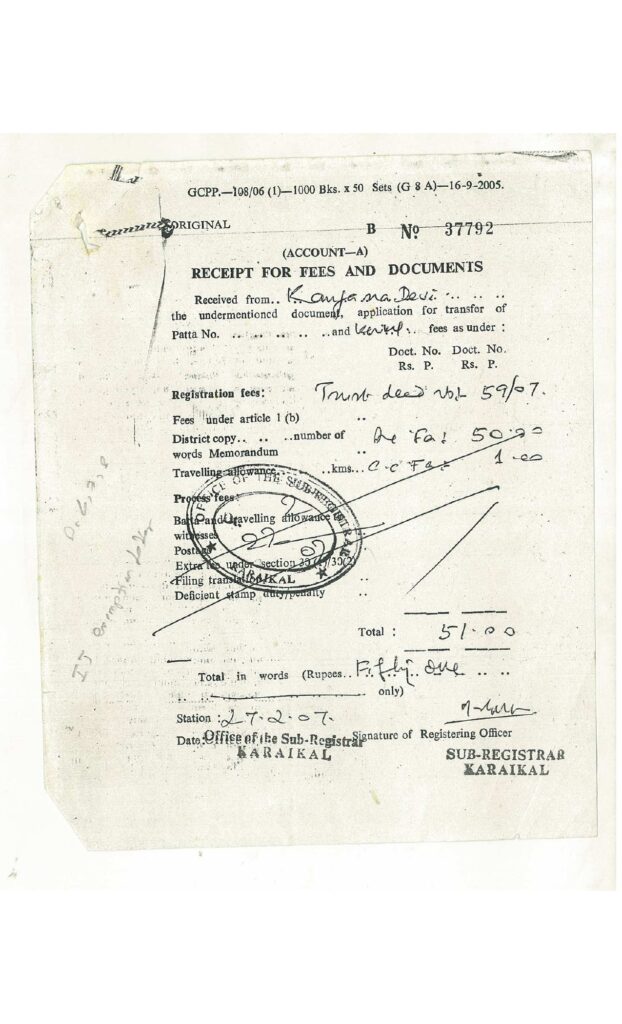 GCPP.—108/06 (1)—1000 Bks. x 50 Sets (G 8 A)—16-9-2005.
ORIGINAL B No 37792
(ACCOUNT—A)
RECEIPT FOR FEES AND DOCUMENTS
Received from.. Devi .. .. ..
the undermentioned document, application for transfer of
Patta No. .. .. .. .. .. ..and fees as under :
Doct. No. Doct. No.
Rs. P. Rs. P.
Registration fees: Trust deed 59/07.
Fees under article 1 (b) ..
District copy.. .. ..number of 50.00
words Memorandum ..
Travelling allowance.. ..kms.. 1.00
OFFICE OF THE SUB-REGISTRAR
KARAIKAL
27
07
Process fees
Batta and Travelling allowance
witnesses
Postage
Extra fee under section 30(1)/30(2)
Filing translation ..
Deficient stamp duty/penalty ..
Total : 51.00
Total in words (Rupees.. Fifty one .. .. ..
.. .. only)
Station : 27.2.07.
Date: Office of the Sub-Registrar Signature of Registering Officer
KARAIKAL
SUB-REGISTRAR
KARAIKAL
IT exemption